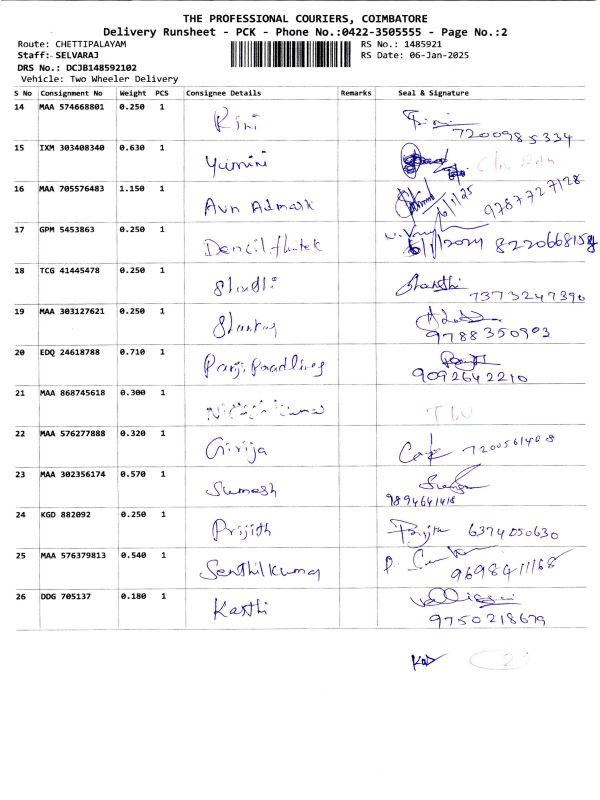 THE PROFESSIONAL COURIERS, COIMBATORE
Delivery Runsheet - PCK - Phone No.:0422-3505555 - Page No.:2
Route: CHETTIPALAYAM RS No.: 1485921
Staff: SELVARAJ RS Date: 06-Jan-2025
DRS No.: DCJB148592102
Vehicle: Two Wheeler Delivery
S No Consignment No Weight PCS Consignee Details Remarks Seal & Signature
14 MAA 574668801 0.250 1 Rini Rini
7200985334
15 IXM 303408340 0.630 1 Yumini
16 MAA 705576483 1.150 1 Avn Admark 6/1/25 9787727128
17 GPM 5453863 0.250 1 Dencil 6/1/2024 8220668158
18 TCG 41445478 0.250 1 Shanthi
7373247390
19 MAA 303127621 0.250 1
9788350903
20 EDQ 24618788 0.710 1
9092642210
21 MAA 868745618 0.300 1
22 MAA 576277888 0.320 1 Girija 7200561408
23 MAA 302356174 0.570 1 Sumesh
9894641418
24 KGD 882092 0.250 1 Prijith 6374050630
25 MAA 576379813 0.540 1 Senthil Kumar
9698411168
26 DDG 705137 0.180 1 Karthi
9750218679
2